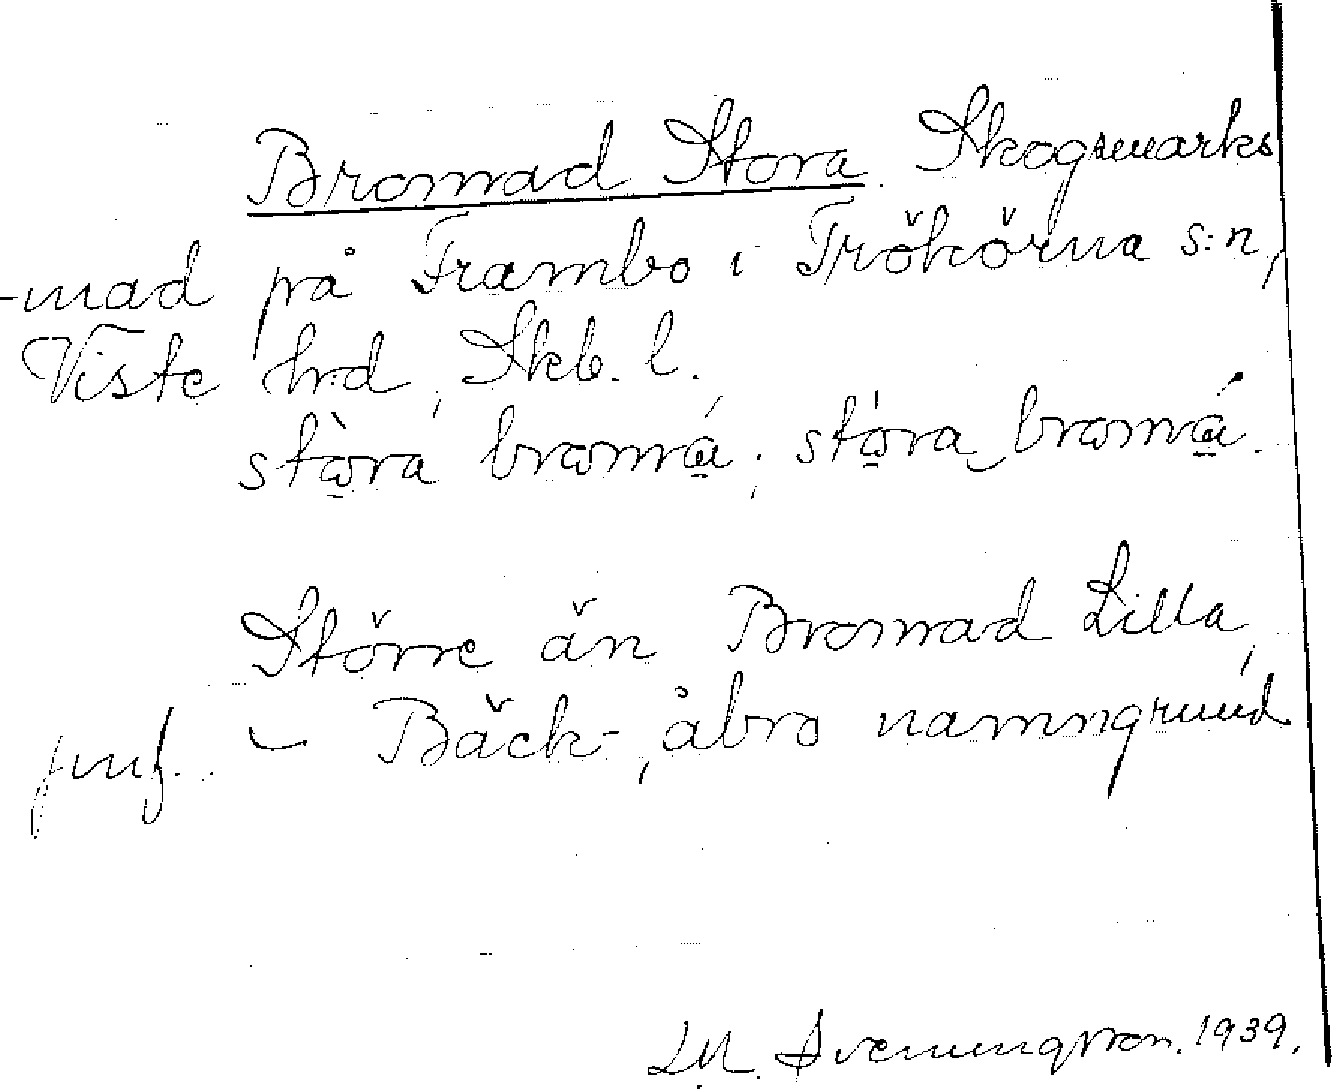 Bromad Stora. Skogsmarks
-mad på Frambo i Trökörna s:n,
Viste h:d, Skb. l.
stòra bromá; stóra bromá.
Större än Bromad Lilla,
jmf. – Bäck-, åbro namngrund
L.M. Svenungsson. 1939.